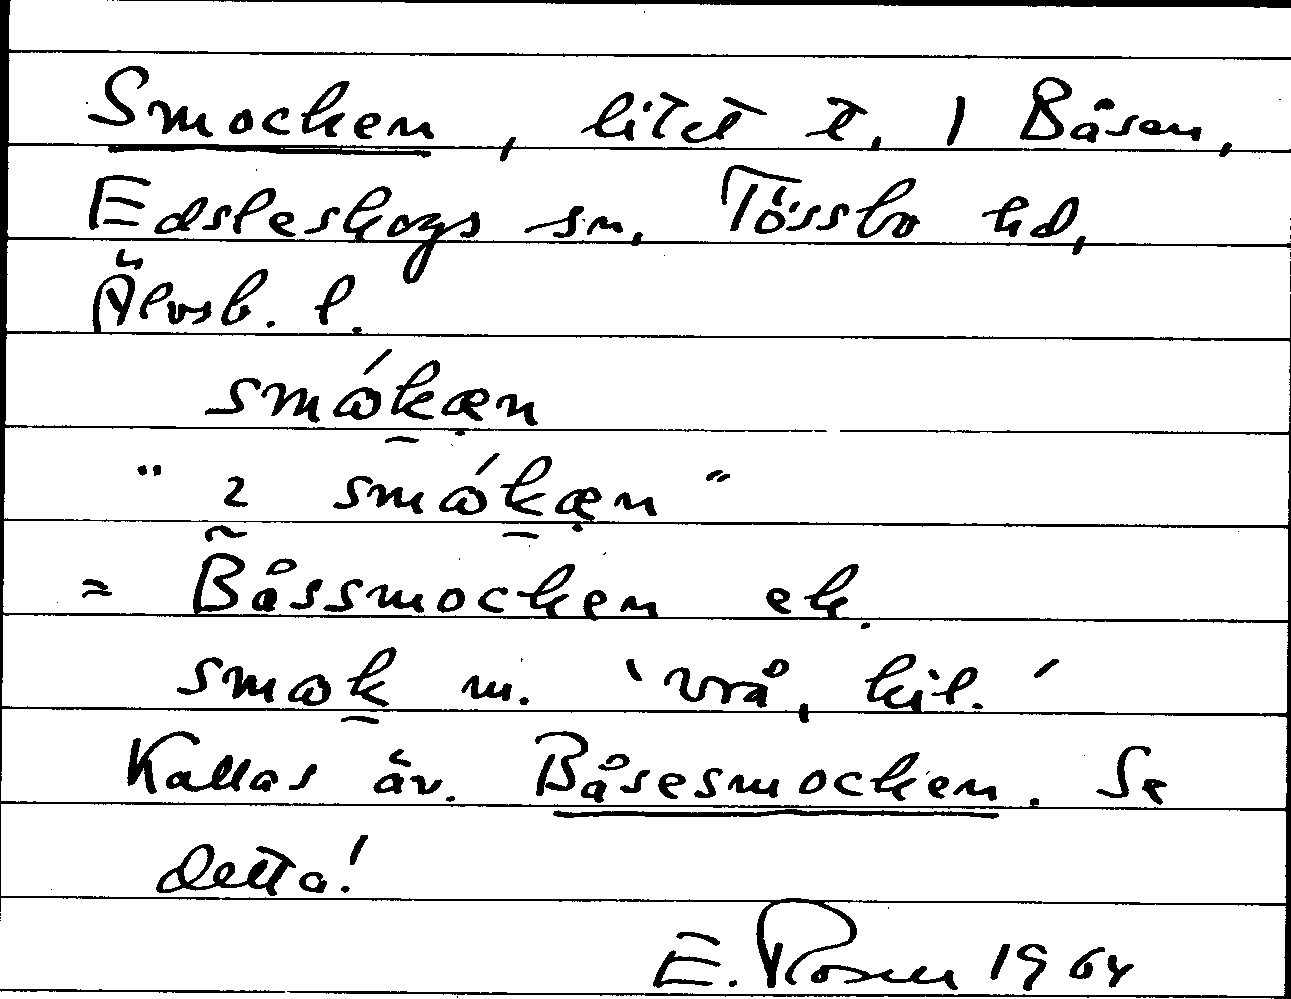 Smocken, litet t. 1 Båsen,
Edsleskogs sn, Tössbo hd,
Älvsb. l.
smɷ́kæn
" 2 smɷ́kæn "
= Båssmocken ek.
smɷk m. 'vrå, kil.'
Kallas äv. Båsesmocken. Se
detta!
E. Rosen 1964